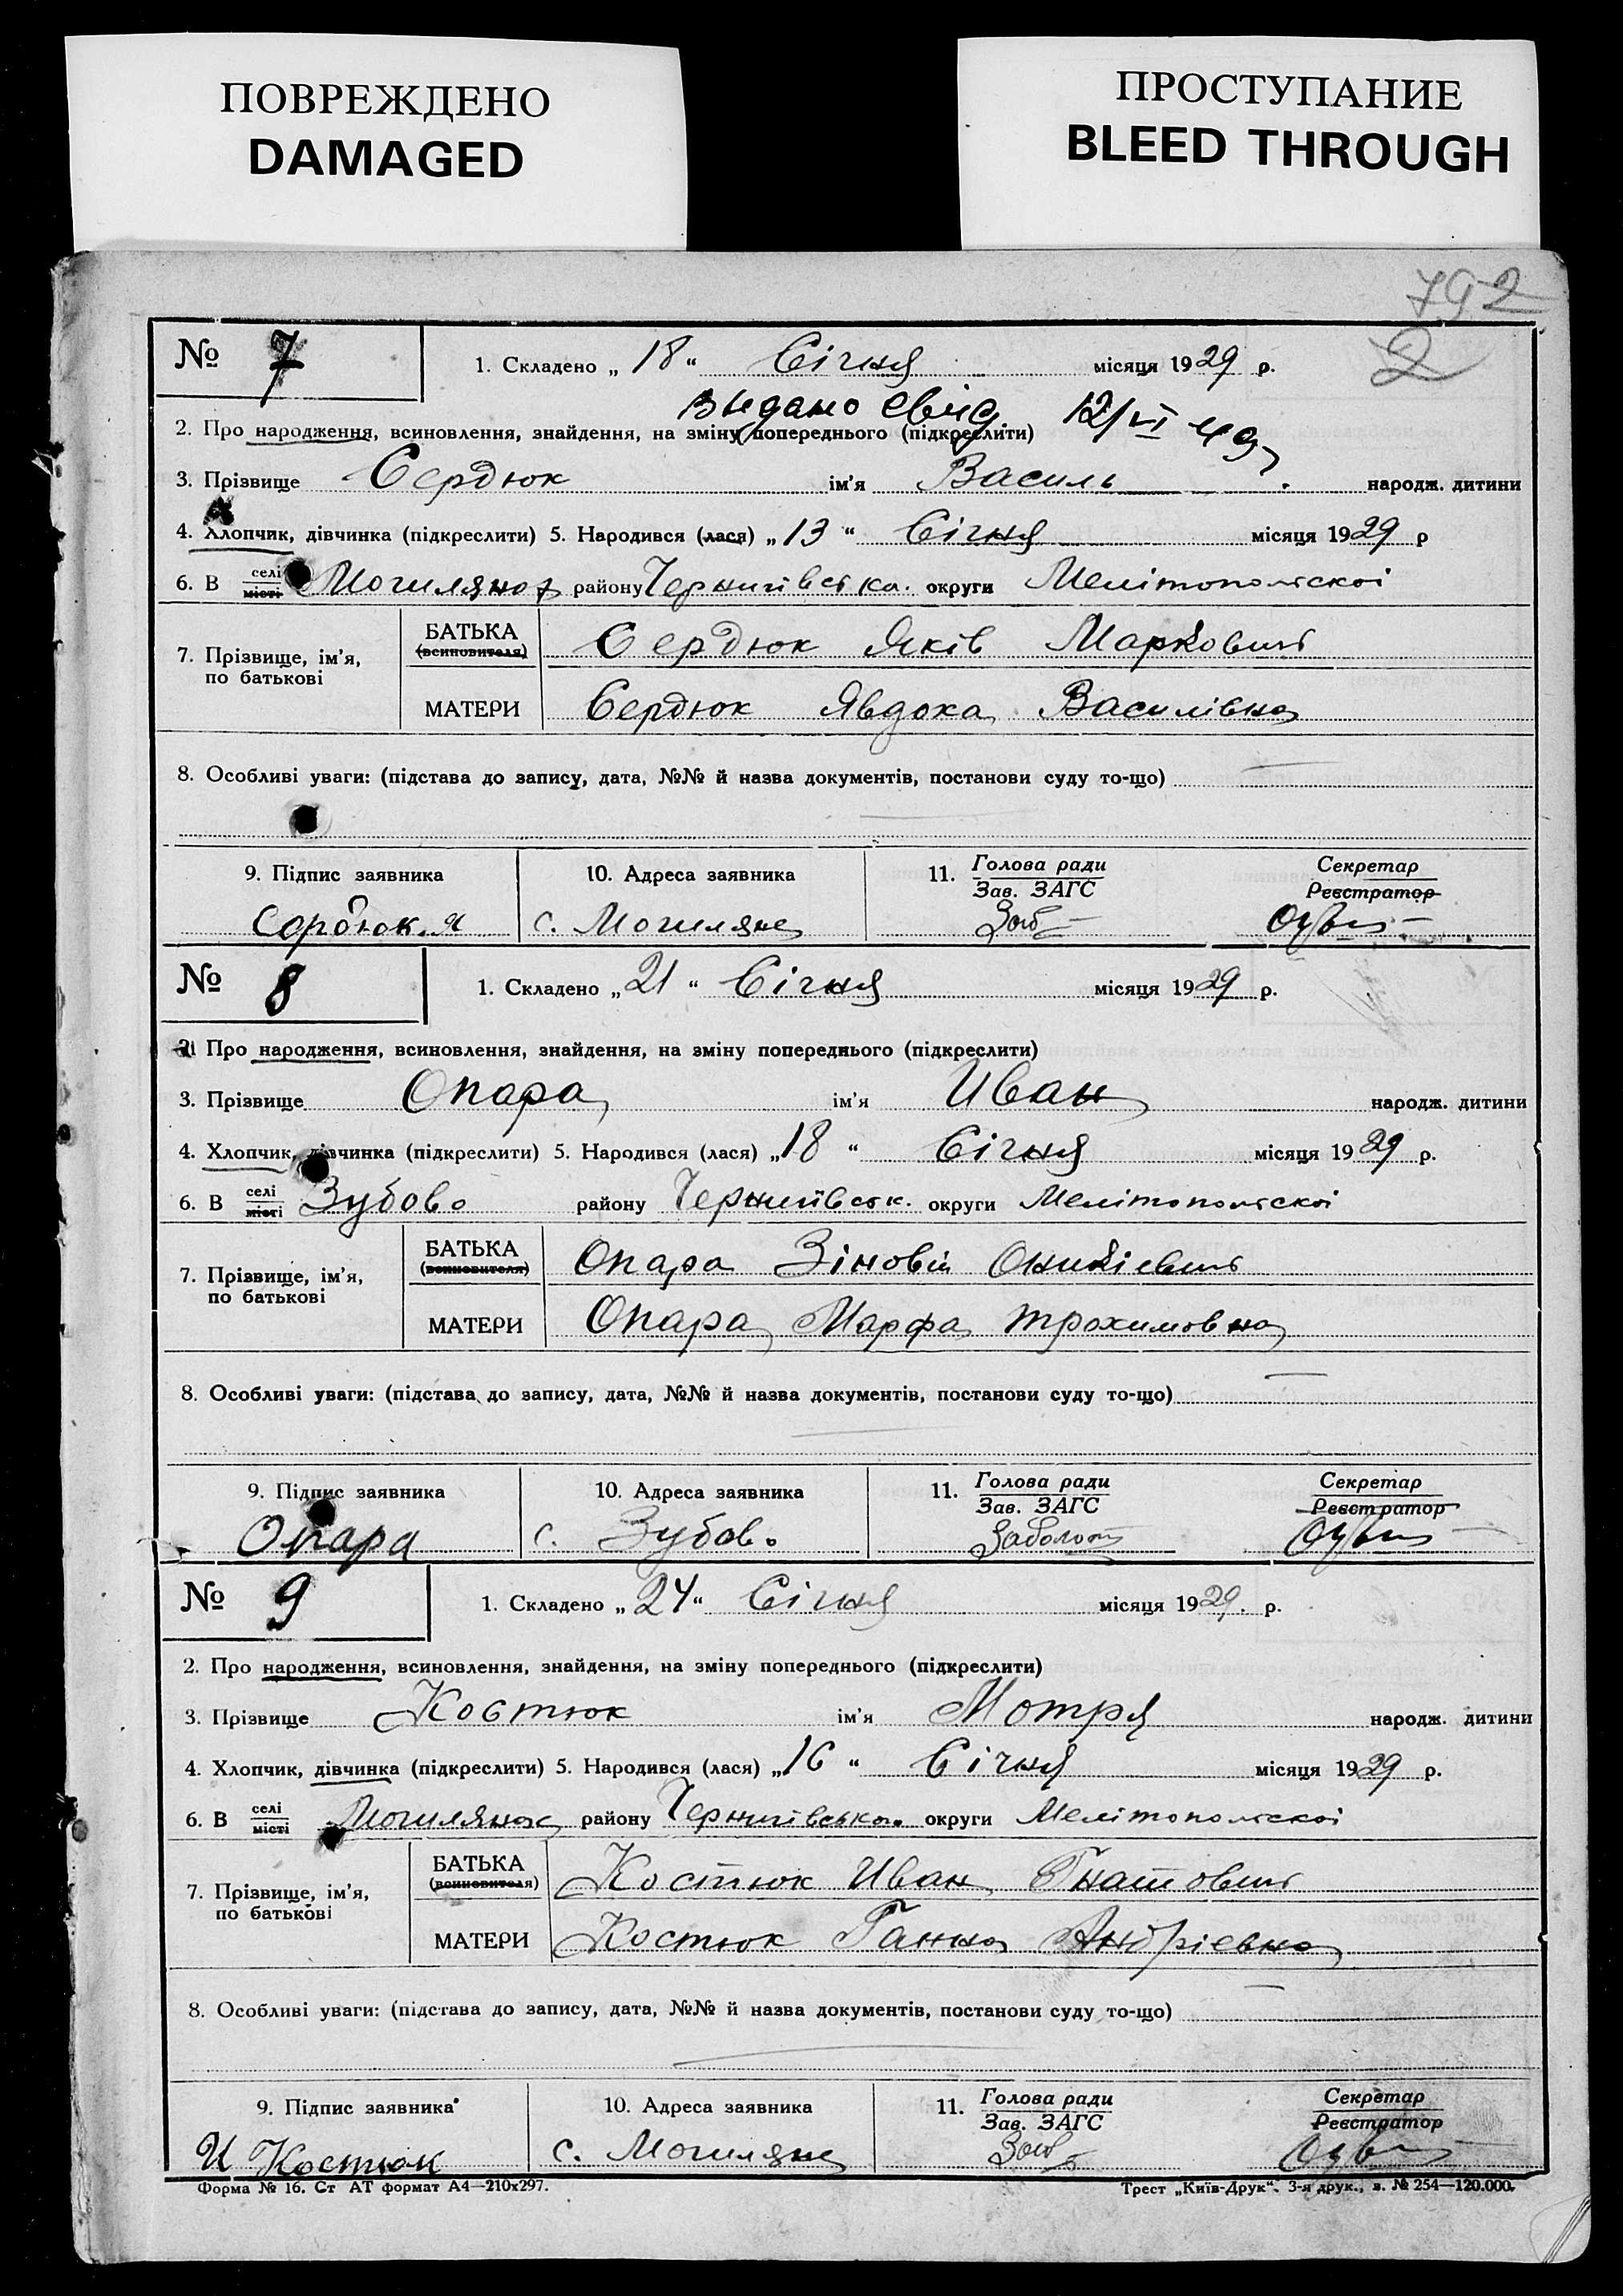 ПОВРЕЖДЕНО
DAMAGED
ПРОСТУПАНИЕ
BLEED THROUGH
792
2
№ 7 1. Складено „ 18 “ Січня місяця 1929 р.
Видано свид. 12/VI 49
2. Про народження, всиновлення, знайдення, на зміну попереднього (підкреслити)
3. Прізвище Сердюк ім'я Василь народж. дитини
4. Хлопчик, дівчинка (підкреслити) 5. Народився (лася) „ 13 “ Січня місяця 1929 р
6. В селі місті Могилянах району Чернигівська. округи Мелітопольскоі
7. Прізвище, ім'я, по батькові БАТЬКА (всиновителя) Сердюк Яків Маркович
МАТЕРИ Сердюк Явдока Василівна
8. Особливі уваги: (підстава до запису, дата, №№ й назва документів, постанови суду то-що)
9. Підпис заявника 10. Адреса заявника 11. Голова ради Зав. ЗАГС Секретар Реєстратор
Сордюк. Я с. Могиляне Заб
№ 8 1. Складено „ 21 “ Січня місяця 1929 р.
2. Про народження, всиновлення, знайдення, на зміну попереднього (підкреслити)
3. Прізвище Опара ім'я Иван народж. дитини
4. Хлопчик, дівчинка (підкреслити) 5. Народився (лася) „ 18 “ Січня місяця 1929 р.
6. В селі місті Зубово району Чернигівськ. округи Мелітопольскоі
7. Прізвище, ім'я, по батькові БАТЬКА (всиновителя) Опара Зіновій
МАТЕРИ Опара Марфа Трохимовна
8. Особливі уваги: (підстава до запису, дата, №№ й назва документів, постанови суду то-що)
9. Підпис заявника 10. Адреса заявника 11. Голова ради Зав. ЗАГС Секретар Реєстратор
Опара с. Зубово Заболот
№ 9 1. Складено „ 24 “ Січня місяця 1929. р.
2. Про народження, всиновлення, знайдення, на зміну попереднього (підкреслити)
3. Прізвище Костюк ім'я Мотря народж. дитини
4. Хлопчик, дівчинка (підкреслити) 5. Народився (лася) „ 16 “ Січня місяця 1929 р.
6. В селі місті Могилянах району Чернигівська. округи Мелітопольскоі
7. Прізвище, ім'я, по батькові БАТЬКА (всиновителя) Костюк Иван Гнатович
МАТЕРИ Костюк Ганна Андріевна
8. Особливі уваги: (підстава до запису, дата, №№ й назва документів, постанови суду то-що)
9. Підпис заявника 10. Адреса заявника 11. Голова ради Зав. ЗАГС Секретар Реєстратор
И Костюк с. Могиляне Заб
Форма № 16. Ст АТ формат А4—210х297. Трест „Київ-Друк“. 3-я друк., з. № 254—120.000.